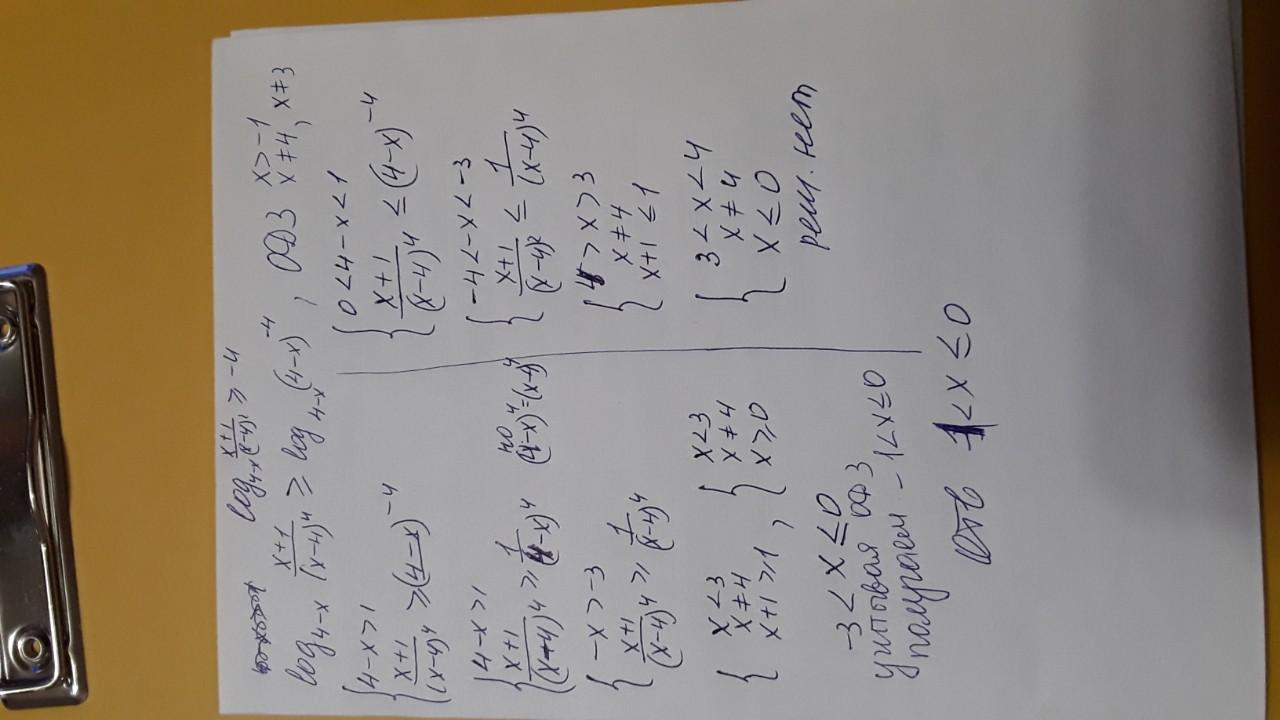 log₄₋ₓ (x+1)/(x-4)⁴ ≥ -4
log₄₋ₓ (x+1)/(x-4)⁴ ≥ log₄₋ₓ (4-x)⁻⁴, ОДЗ x>-1
x≠4, x≠3
{ 4-x>1
(x+1)/(x-4)⁴ ≥ (4-x)⁻⁴
{ 4-x>1
(x+1)/(x-4)⁴ ≥ 1/(4-x)⁴ но (4-x)⁴=(x-4)⁴
{ -x>-3
(x+1)/(x-4)⁴ ≥ 1/(x-4)⁴
{ x<3
x≠4
x+1≥1 , { x<3
x≠4
x≥0
-3<x≤0
учитывая ОДЗ
получаем -1<x≤0
{ 0<4-x<1
(x+1)/(x-4)⁴ ≤ (4-x)⁻⁴
{ -4<-x<-3
(x+1)/(x-4)⁴ ≤ 1/(x-4)⁴
{ 4>x>3
x≠4
x+1≤1
{ 3<x<4
x≠4
x≤0
реш. нет
Отв -1<x≤0